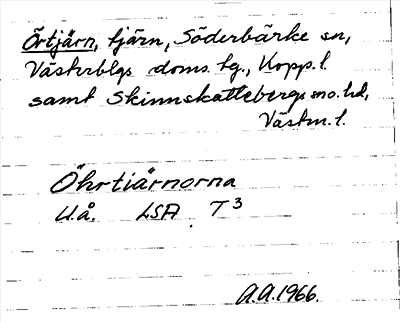 Örtjärn, tjärn, Söderbärke sn,
Västerblgs doms. tg., Kopp. l.
samt Skinnskattebergs sno. hd,
Västm. l.
Öhrtiärnorna
U.å. LSA T3
A.A. 1966.